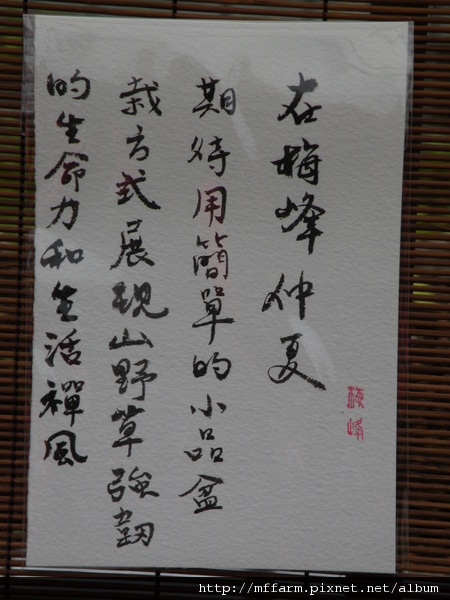 在梅峰仲夏
期待用簡單的小品盆
栽方式展現山野草強韌
的生命力和生活禪風
梅峰
http://mffarm.pixnet.net/album